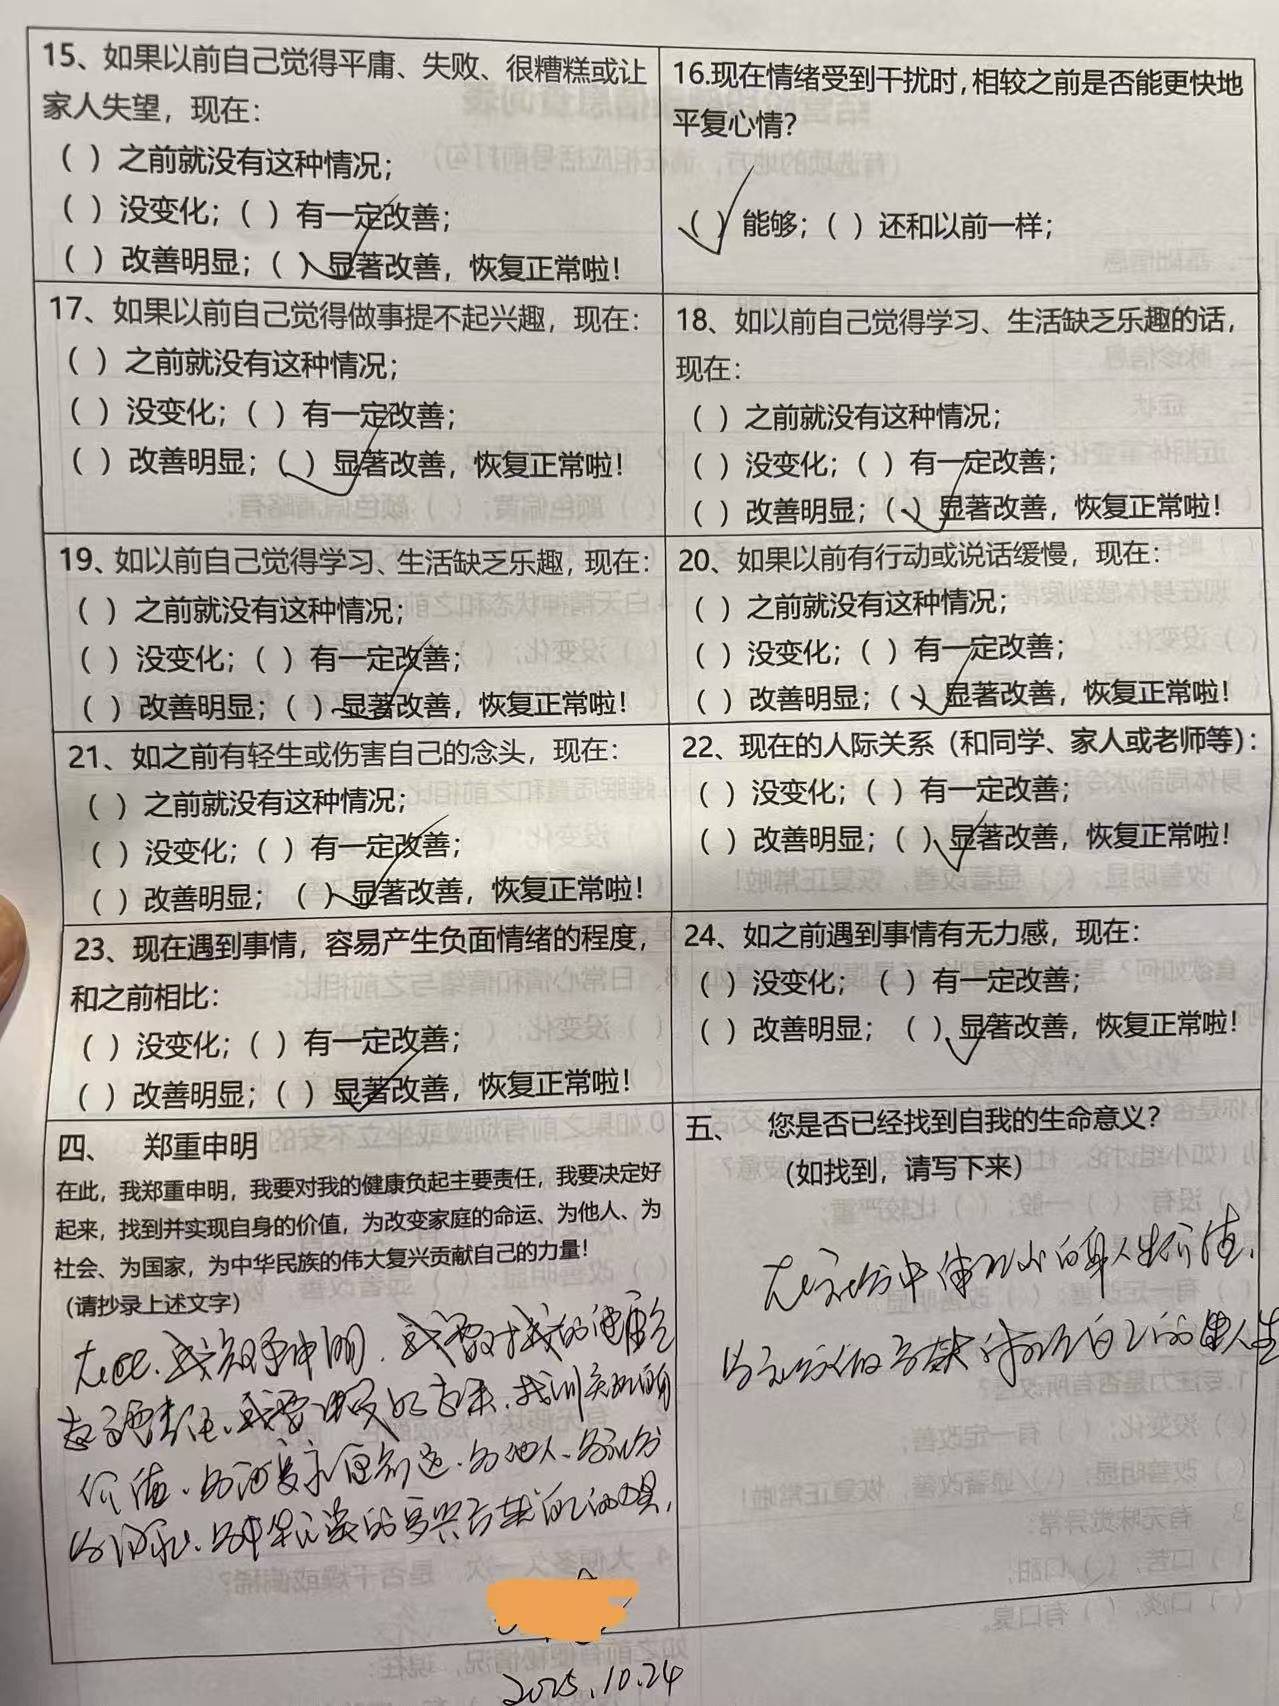 15、如果以前自己觉得平庸、失败、很糟糕或让
家人失望，现在：
（ ）之前就没有这种情况；
（ ）没变化；（ ）有一定改善；
（ ）改善明显；（ ）显著改善，恢复正常啦！
16.现在情绪受到干扰时，相较之前是否能更快地
平复心情？
（ ）能够；（ ）还和以前一样；
17、如果以前自己觉得做事提不起兴趣，现在：
（ ）之前就没有这种情况；
（ ）没变化；（ ）有一定改善；
（ ）改善明显；（ ）显著改善，恢复正常啦！
18、如以前自己觉得学习、生活缺乏乐趣的话，
现在：
（ ）之前就没有这种情况；
（ ）没变化；（ ）有一定改善；
（ ）改善明显；（ ）显著改善，恢复正常啦！
19、如以前自己觉得学习、生活缺乏乐趣，现在：
（ ）之前就没有这种情况；
（ ）没变化；（ ）有一定改善；
（ ）改善明显；（ ）显著改善，恢复正常啦！
20、如果以前有行动或说话缓慢，现在：
（ ）之前就没有这种情况；
（ ）没变化；（ ）有一定改善；
（ ）改善明显；（ ）显著改善，恢复正常啦！
21、如之前有轻生或伤害自己的念头，现在：
（ ）之前就没有这种情况；
（ ）没变化；（ ）有一定改善；
（ ）改善明显；（ ）显著改善，恢复正常啦！
22、现在的人际关系（和同学、家人或老师等）：
（ ）没变化；（ ）有一定改善；
（ ）改善明显；（ ）显著改善，恢复正常啦！
23、现在遇到事情，容易产生负面情绪的程度，
和之前相比：
（ ）没变化；（ ）有一定改善；
（ ）改善明显；（ ）显著改善，恢复正常啦！
24、如之前遇到事情有无力感，现在：
（ ）没变化；（ ）有一定改善；
（ ）改善明显；（ ）显著改善，恢复正常啦！
四、 郑重申明
在此，我郑重申明，我要对我的健康负起主要责任，我要决定好
起来，找到并实现自身的价值，为改变家庭的命运、为他人、为
社会、为国家，为中华民族的伟大复兴贡献自己的力量！
（请抄录上述文字）
在此，我郑重申明，我要对我的健康负
起主要责任，我要决定好起来，找到实现自身
价值，为改变家庭命运，为他人、为社会
为国家，为中华民族的复兴贡献自己的力量，
2025.10.24
五、 您是否已经找到自我的生命意义？
（如找到，请写下来）
在社会中体现自身人生价值，
为社会做贡献 自己的 人生